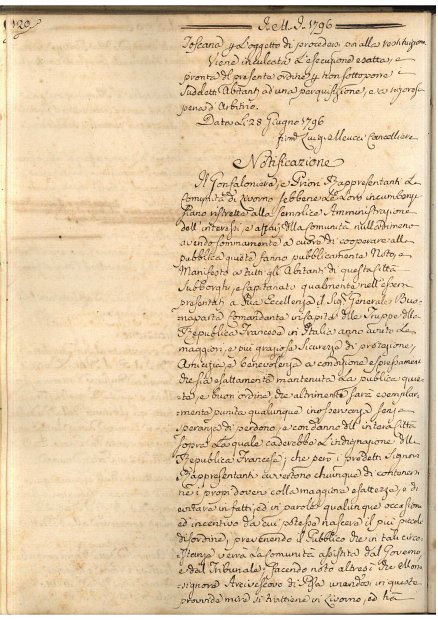 120
A. M. D. 1796
Toscana, e l'oggetto di procedere ora alla restituzione
Viene inculcata l'esecuzione esatta, e
pronta del presente ordine, e non sottoporre i
Suddetti Abitanti ad una perquisizione, e a rigorose
pena d'Arbitrio.
Data li 28 Giugno 1796
Luigi Meucci Cancelliere
Notificazione
Il Gonfaloniere, e Priori Rappresentanti la
Comunità di Livorno sebbene le Loro incumbenze
siano ristrette alla semplice Amministrazione
dell'interessi, e affari della Comunità nulladimeno
avendo sommamente a cuore di cooperare alla
pubblica quiete fanno pubblicamente Noto, e
Manifesto a tutti gli Abitanti di questa Città
Subborghi, e Capitanato qualmente nell'essersi
presentati a Sua Eccellenza il Sig. Generale Buo-
naparte Comandante in capite delle Truppe della
Repubblica Francese in Italia anno avute le
maggiori, e più graziose sicurezze di protezione,
Amicizia, e benevolenza a condizione espressamente
che sia esattamente mantenuta la pubblica quie-
te, e buon ordine che altrimenti sarà esemplar-
mente punita qualunque inosservanza senza
speranza di perdono, e con danno dell'intera Città
sopra la quale caderebbe l'indignazione della
Repubblica Francese; che però i predetti Signori
Rappresentanti avvertono chiunque di contenersi
nei propri doveri colla maggiore esattezza, e di
evitare in fatti, ed in parole qualunque occasione
ed incentivo da cui potesse nascere il più piccolo
disordine, prevenendo il Pubblico che in tali circo-
stanze verrà la Comunità assistita dal Governo,
e dal Tribunale, facendo noto altresì che Mon-
signore Arcivescovo di Pisa unendosi in queste
provvide mire si trattiene in Livorno, ed hà